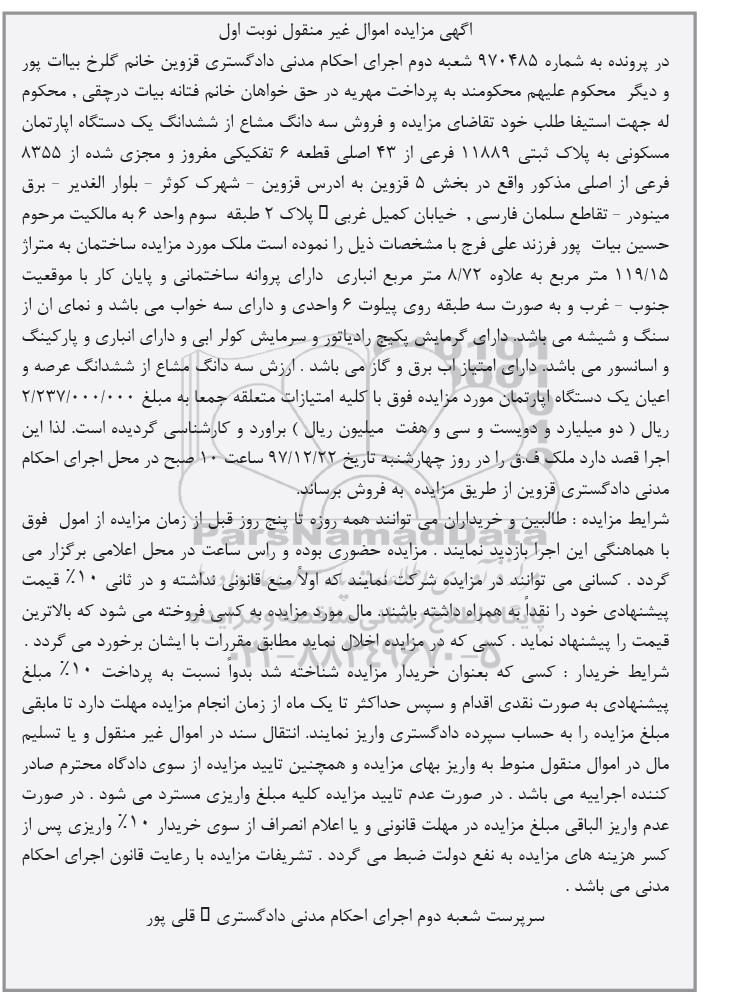 اگهی مزایده اموال غیر منقول نوبت اول
در پرونده به شماره ۹۷۰۴۸۵ شعبه دوم اجرای احکام مدنی دادگستری قزوین خانم گلرخ بیاات پور
و دیگر محکوم علیهم محکومند به پرداخت مهریه در حق خواهان خانم فتانه بیات درچقی , محکوم
له جهت استیفا طلب خود تقاضای مزایده و فروش سه دانگ مشاع از ششدانگ یک دستگاه اپارتمان
مسکونی به پلاک ثبتی ۱۱۸۸۹ فرعی از ۴۳ اصلی قطعه ۶ تفکیکی مفروز و مجزی شده از ۸۳۵۵
فرعی از اصلی مذکور واقع در بخش ۵ قزوین به ادرس قزوین - شهرک کوثر - بلوار الغدیر - برق
مینودر - تقاطع سلمان فارسی , خیابان کمیل غربی پلاک ۲ طبقه سوم واحد ۶ به مالکیت مرحوم
حسین بیات پور فرزند علی فرج با مشخصات ذیل را نموده است ملک مورد مزایده ساختمان به متراژ
۱۱۹/۱۵ متر مربع به علاوه ۸/۷۲ متر مربع انباری دارای پروانه ساختمانی و پایان کار با موقعیت
جنوب - غرب و به صورت سه طبقه روی پیلوت ۶ واحدی و دارای سه خواب می باشد و نمای ان از
سنگ و شیشه می باشد. دارای گرمایش پکیج رادیاتور و سرمایش کولر ابی و دارای انباری و پارکینگ
و اسانسور می باشد. دارای امتیاز آب برق و گاز می باشد . ارزش سه دانگ مشاع از ششدانگ عرصه و
اعیان یک دستگاه اپارتمان مورد مزایده فوق با کلیه امتیازات متعلقه جمعا به مبلغ ۲/۲۳۷/۰۰۰/۰۰۰
ریال ( دو میلیارد و دویست و سی و هفت میلیون ریال ) براورد و کارشناسی گردیده است. لذا این
اجرا قصد دارد ملک ف.ق را در روز چهارشنبه تاریخ ۹۷/۱۲/۲۲ ساعت ۱۰ صبح در محل اجرای احکام
مدنی دادگستری قزوین از طریق مزایده به فروش برساند.
شرایط مزایده : طالبین و خریداران می توانند همه روزه تا پنج روز قبل از زمان مزایده از امول فوق
با هماهنگی این اجرا بازدید نمایند . مزایده حضوری بوده و راس ساعت در محل اعلامی برگزار می
گردد . کسانی می توانند در مزایده شرکت نمایند که اولاً منع قانونی نداشته و در ثانی ۱۰٪ قیمت
پیشنهادی خود را نقداً به همراه داشته باشند. مال مورد مزایده به کسی فروخته می شود که بالاترین
قیمت را پیشنهاد نماید . کسی که در مزایده اخلال نماید مطابق مقررات با ایشان برخورد می گردد .
شرایط خریدار : کسی که بعنوان خریدار مزایده شناخته شد بدواً نسبت به پرداخت ۱۰٪ مبلغ
پیشنهادی به صورت نقدی اقدام و سپس حداکثر تا یک ماه از زمان انجام مزایده مهلت دارد تا مابقی
مبلغ مزایده را به حساب سپرده دادگستری واریز نمایند. انتقال سند در اموال غیر منقول و یا تسلیم
مال در اموال منقول منوط به واریز بهای مزایده و همچنین تایید مزایده از سوی دادگاه محترم صادر
کننده اجراییه می باشد . در صورت عدم تایید مزایده کلیه مبلغ واریزی مسترد می شود . در صورت
عدم واریز الباقی مبلغ مزایده در مهلت قانونی و یا اعلام انصراف از سوی خریدار ۱۰٪ واریزی پس از
کسر هزینه های مزایده به نفع دولت ضبط می گردد . تشریفات مزایده با رعایت قانون اجرای احکام
مدنی می باشد .
سرپرست شعبه دوم اجرای احکام مدنی دادگستری قلی پور
ParsNamadData
پایگاه اطلاع رسانی مناقصه و مزایده
۰۲۱-۸۸۳۴۹۶۷۰-۵